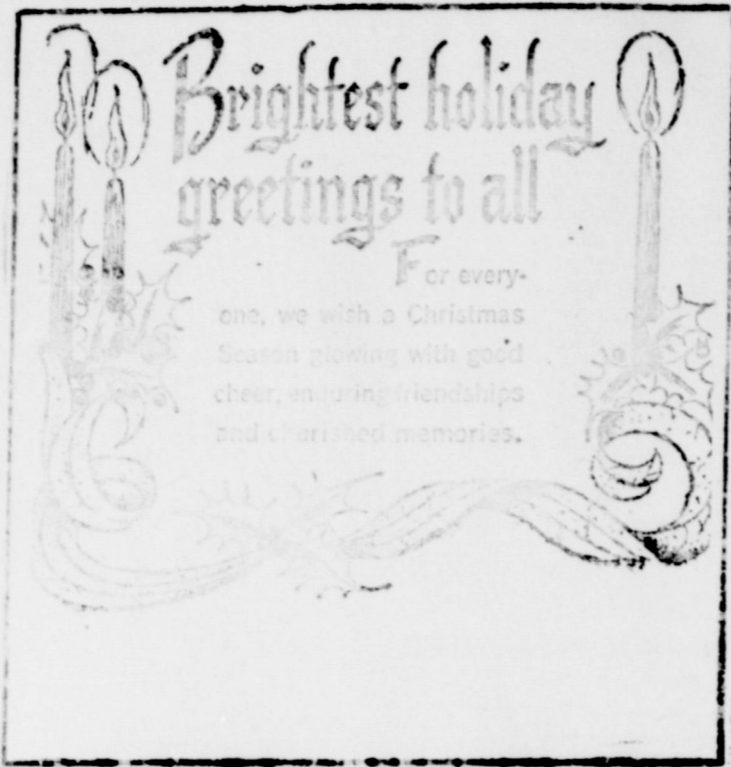 Brightest holiday
greetings to all
For every-
one, we wish a Christmas
Season glowing with good
cheer, enduring friendships
and cherished memories.